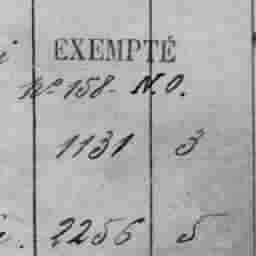 EXEMPTÉ
Nº 158- N.O.
1131 3
2256 5